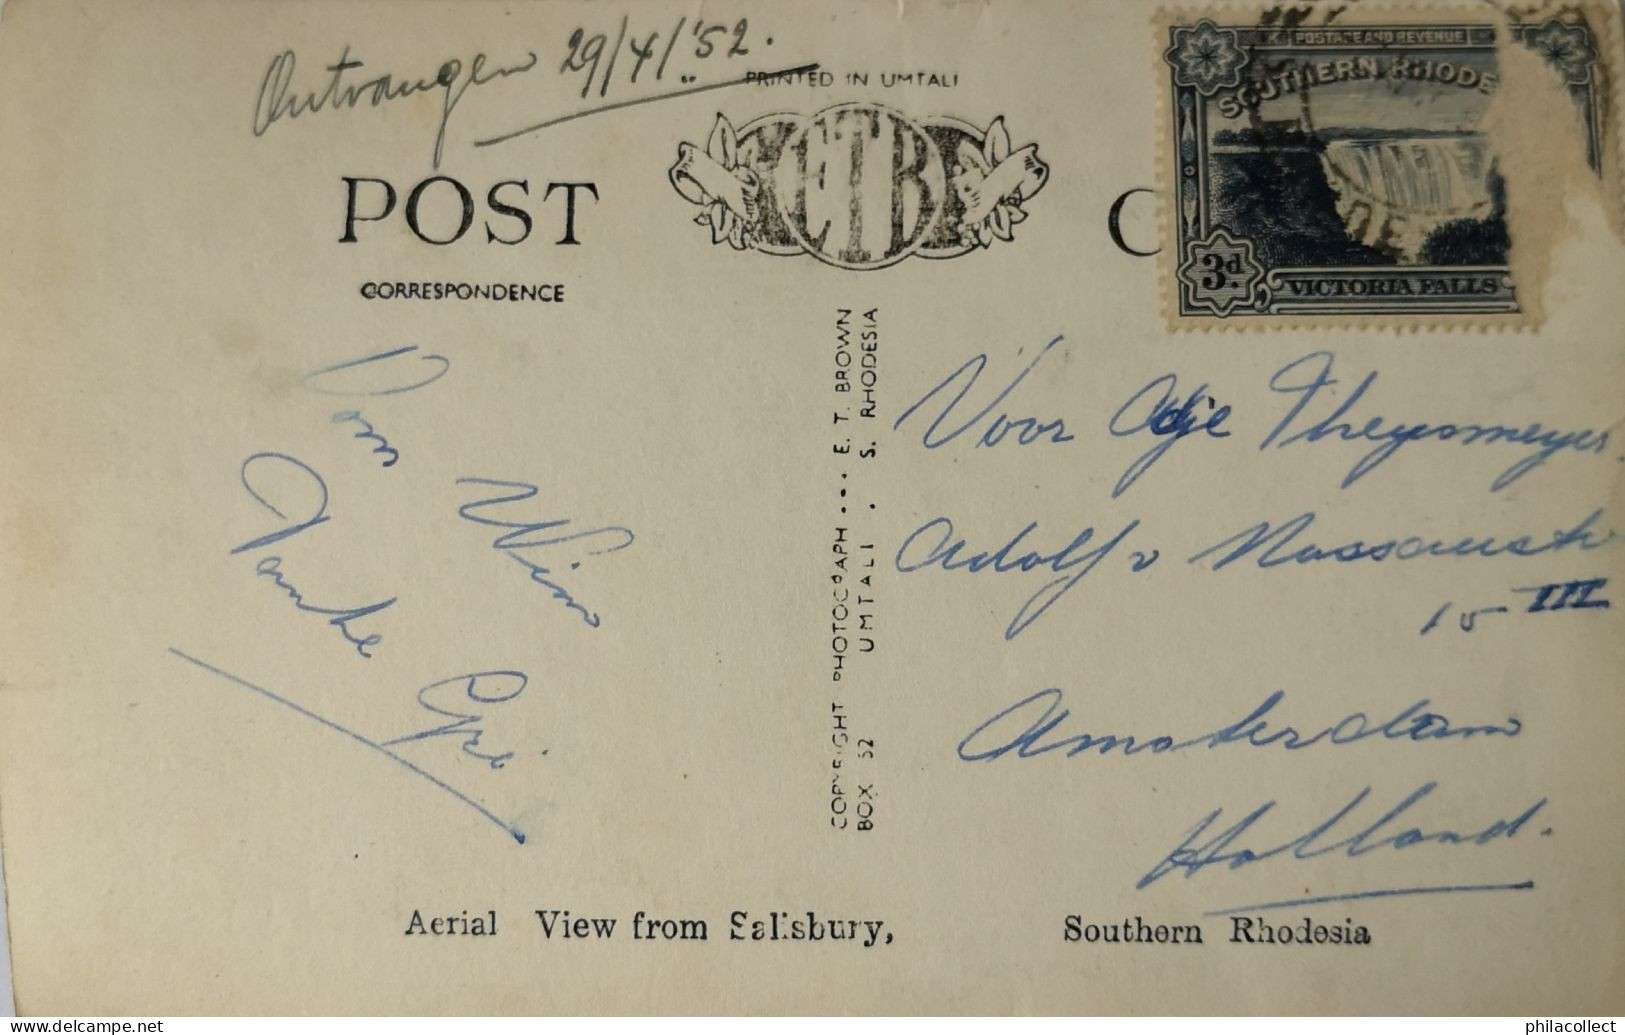 Ontvangen 29/4/'52.
PRINTED IN UMTALI
POSTAGE AND REVENUE
SOUTHERN RHODE
3d.
VICTORIA FALLS
ETB
POST C
CORRESPONDENCE
Oom Wim
Tante Gré
COPYRIGHT PHOTOGRAPH ... E. T. BROWN
BOX 52 UMTALI . S. RHODESIA
Voor Adje Theysmeyer
Adolf v Nassaustr
15 III
Amsterdam
Holland.
Aerial View from Salisbury, Southern Rhodesia
philacollect